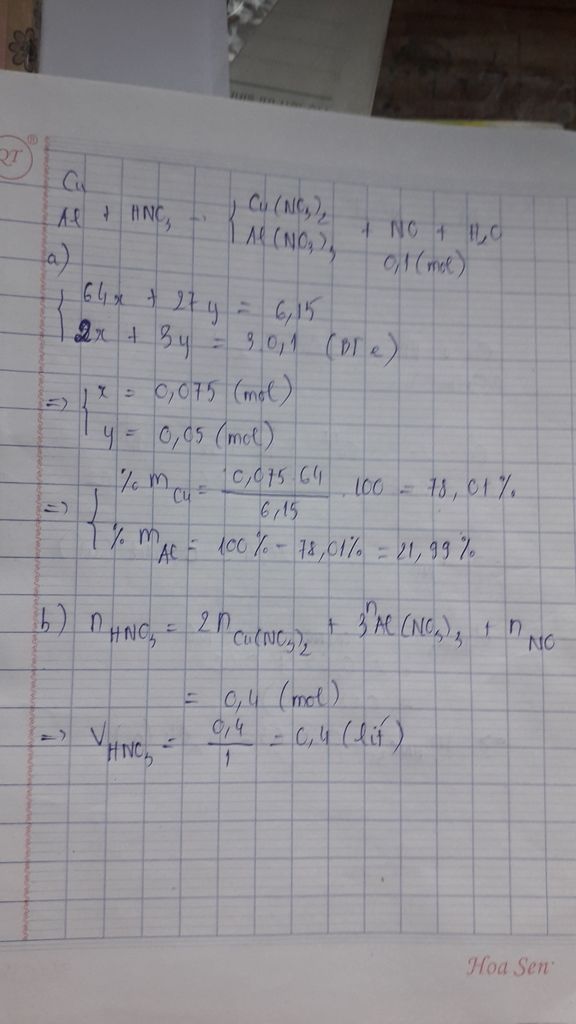 QT
®
Cu
Al + HNO3 → { Cu(NO3)2 + NO + H2O
Al(NO3)3 0,1 (mol)
a)
{ 64x + 27y = 6,15
2x + 3y = 3 0,1 (BT e)
=> { x = 0,075 (mol)
y = 0,05 (mol)
=> { % mCu = 0,075 64 / 6,15 . 100 = 78,01%
% mAl = 100% - 78,01% = 21,99%
b) nHNO3 = 2nCu(NO3)2 + 3nAl(NO3)3 + nNO
= 0,4 (mol)
=> VHNO3 = 0,4 / 1 = 0,4 (lít)
Hoa Sen